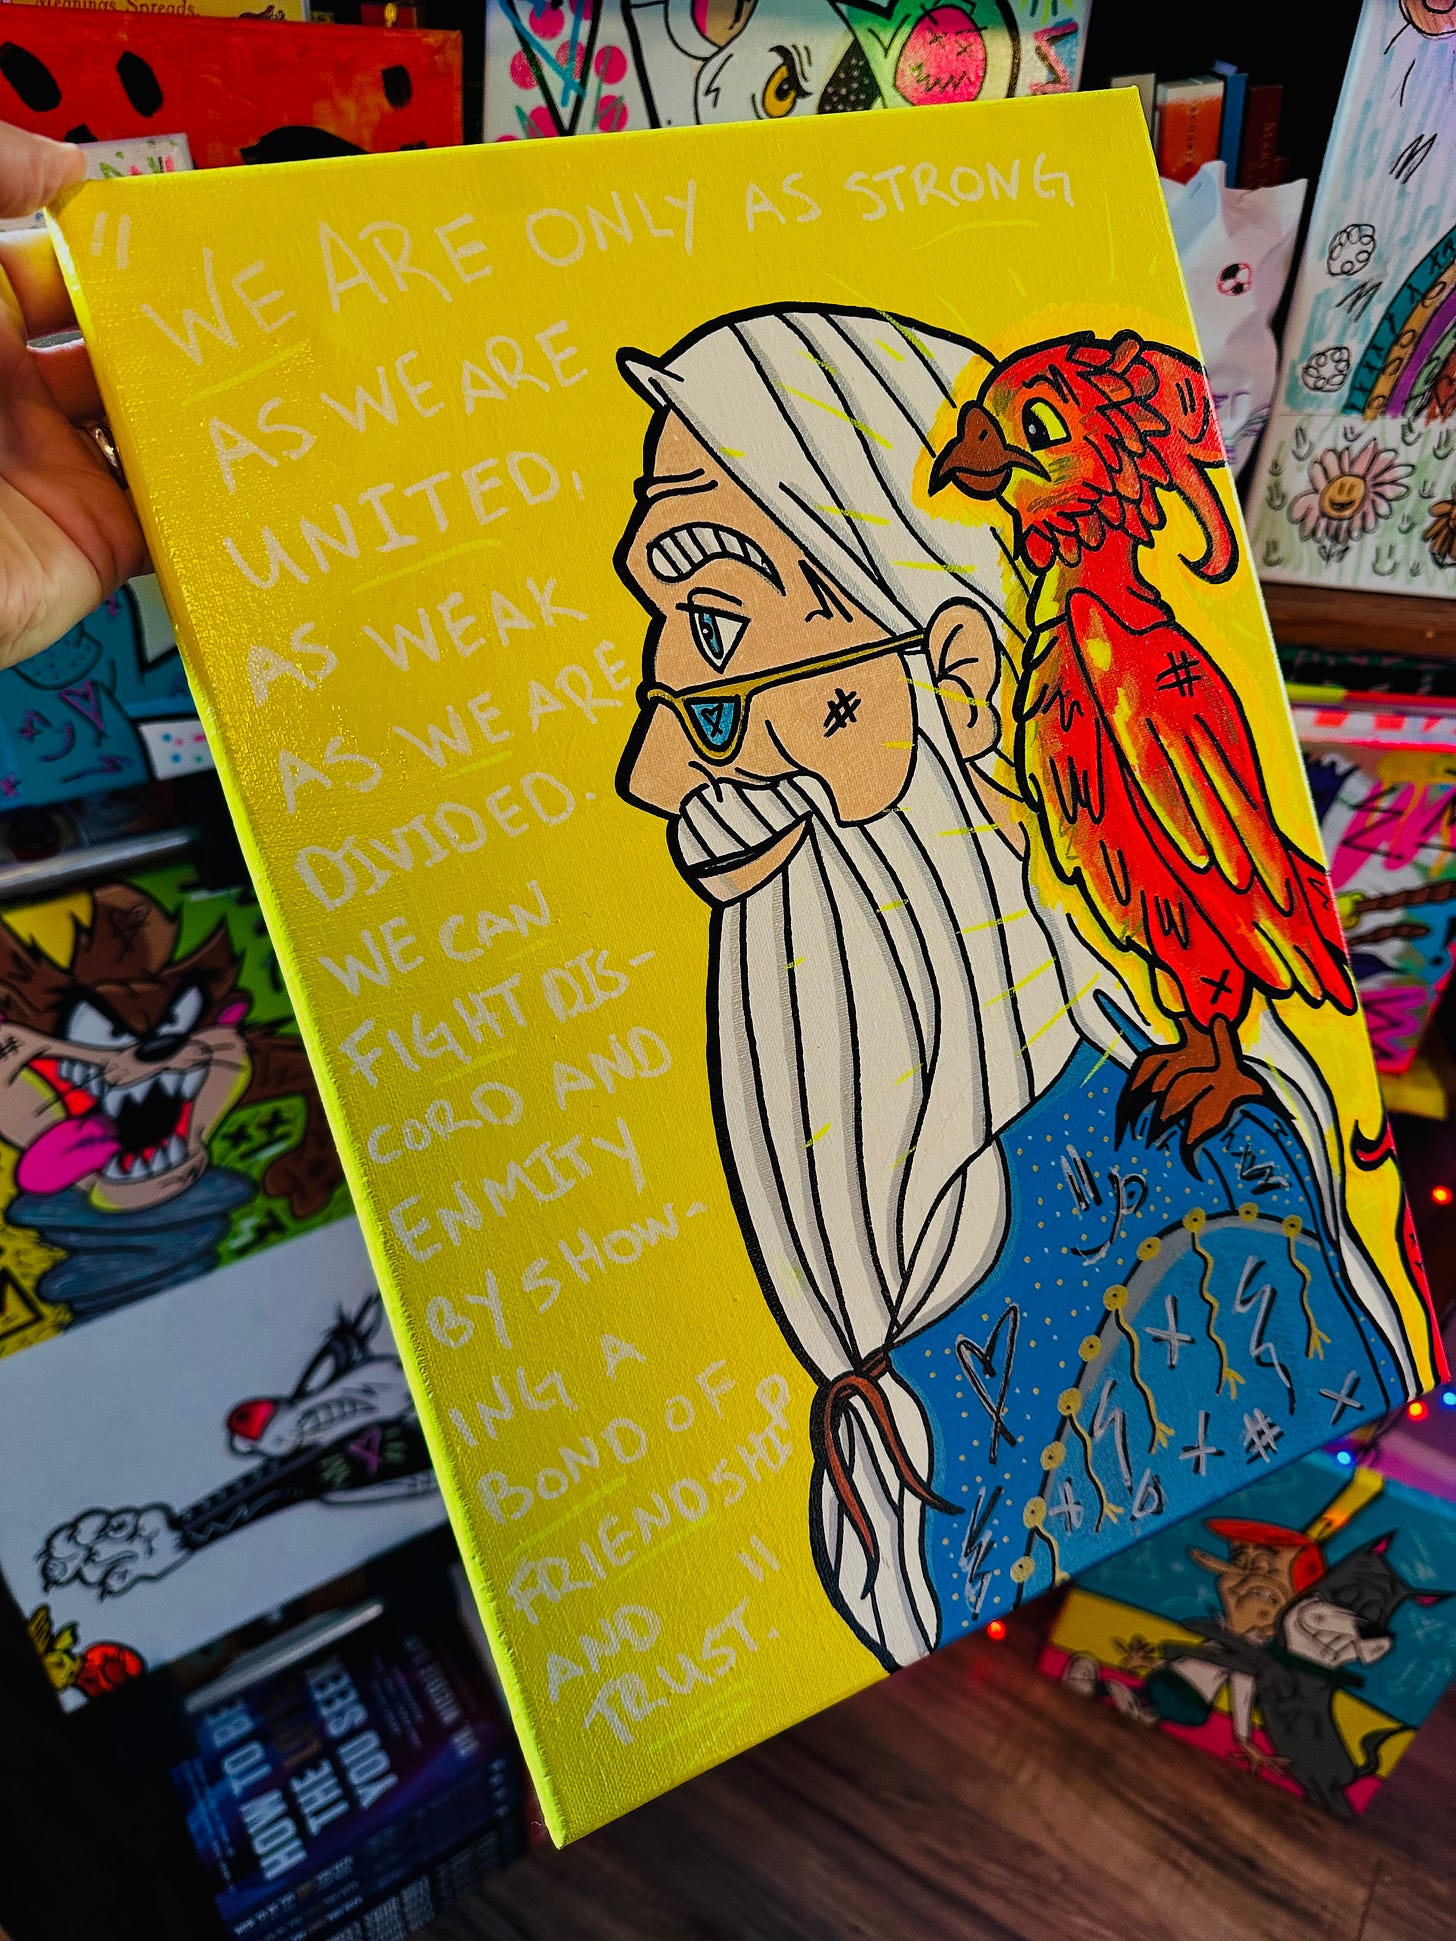 Meanings, Spreads,
"WE ARE ONLY AS STRONG
AS WE ARE
UNITED,
AS WEAK
AS WE ARE
DIVIDED.
WE CAN
FIGHT DIS-
CORD AND
ENMITY
BY SHOW-
ING A
BOND OF
FRIENDSHIP
AND
TRUST."
HOW TO BE
THE
YOU SEEK